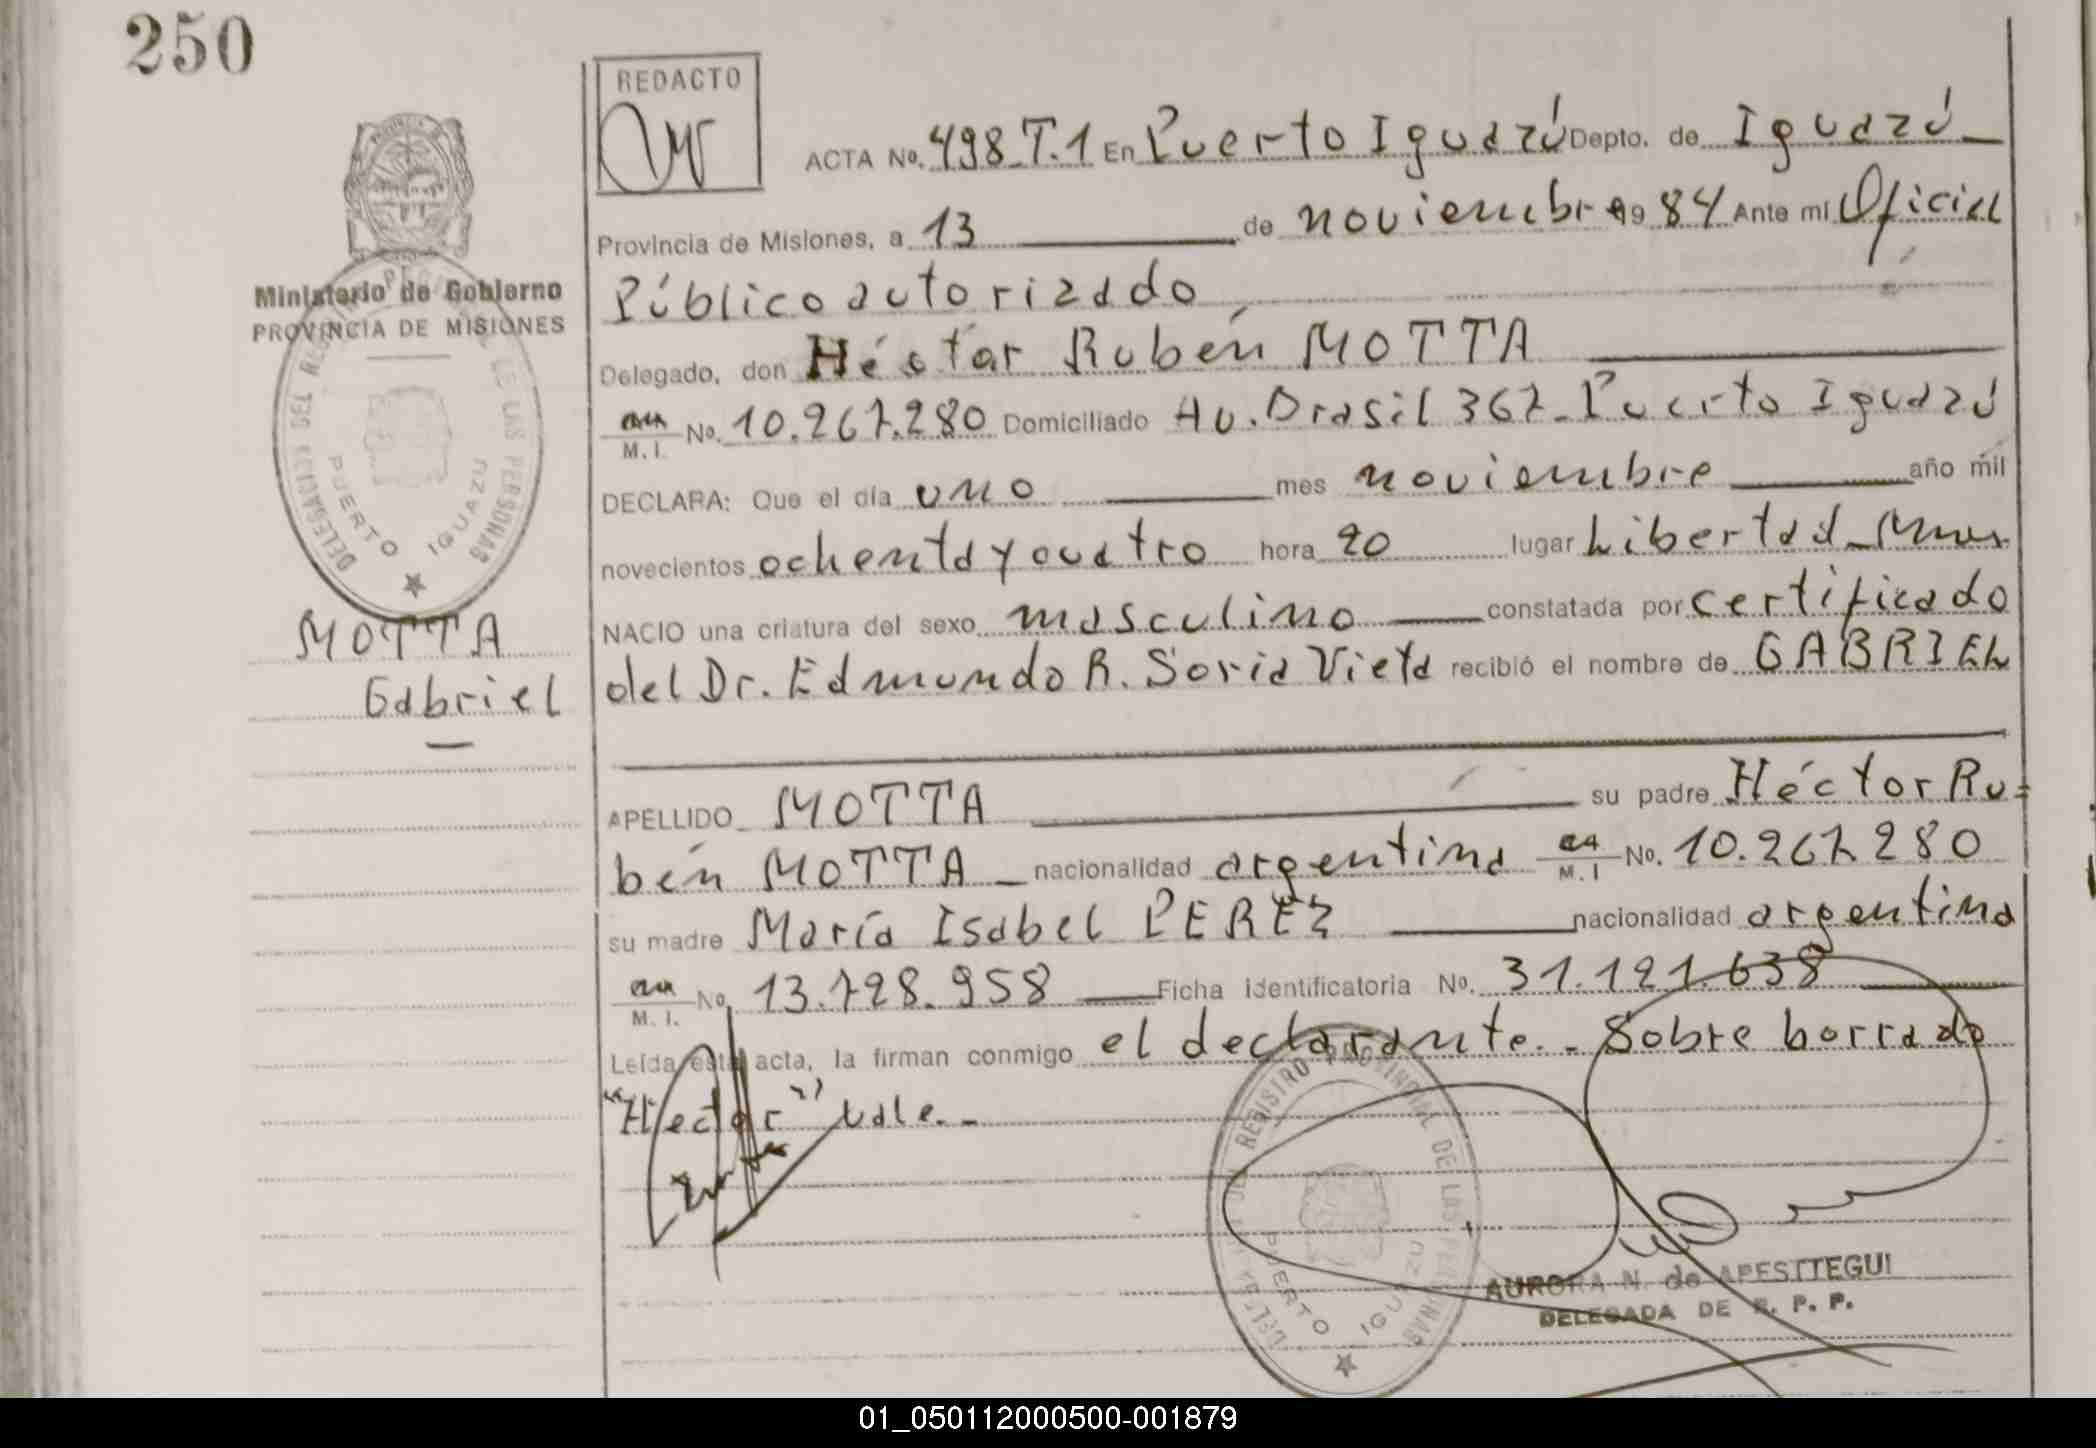 250
REDACTO
ACTA No. 498 T.1 En Puerto Iguazú Depto. de Iguazú
Provincia de Misiones, a 13 de noviembre 19 84 Ante mí Oficial
Público autorizado
Delegado, don Héctor Rubén MOTTA
M. I. No. 10.267.280 Domiciliado Av. Brasil 367 - Puerto Iguazú
DECLARA: Que el día uno mes noviembre año mil
novecientos ochenta y cuatro hora 20 lugar Libertad
NACIO una criatura del sexo masculino constatada por certificado
del Dr. Edmundo R. Soria Vieta recibió el nombre de GABRIEL
APELLIDO MOTTA su padre Héctor Ru=
bén MOTTA nacionalidad argentina M. I No. 10.267.280
su madre María Isabel PEREZ nacionalidad argentina
M. I. No. 13.728.958 Ficha identificatoria No. 31.121.638
Leída esta acta, la firman conmigo el declarante. - Sobre borrado
"Hector" vale. -
Ministerio de Gobierno
PROVINCIA DE MISIONES
DELEGACION DEL REGISTRO PROVINCIAL DE LAS PERSONAS
PUERTO IGUAZU
MOTTA
Gabriel
REGISTRO PROVINCIAL DE LAS PERSONAS
PUERTO IGUAZU
AURORA N. de APESTTEGUI
DELEGADA DE R. P. P.
01_050112000500-001879